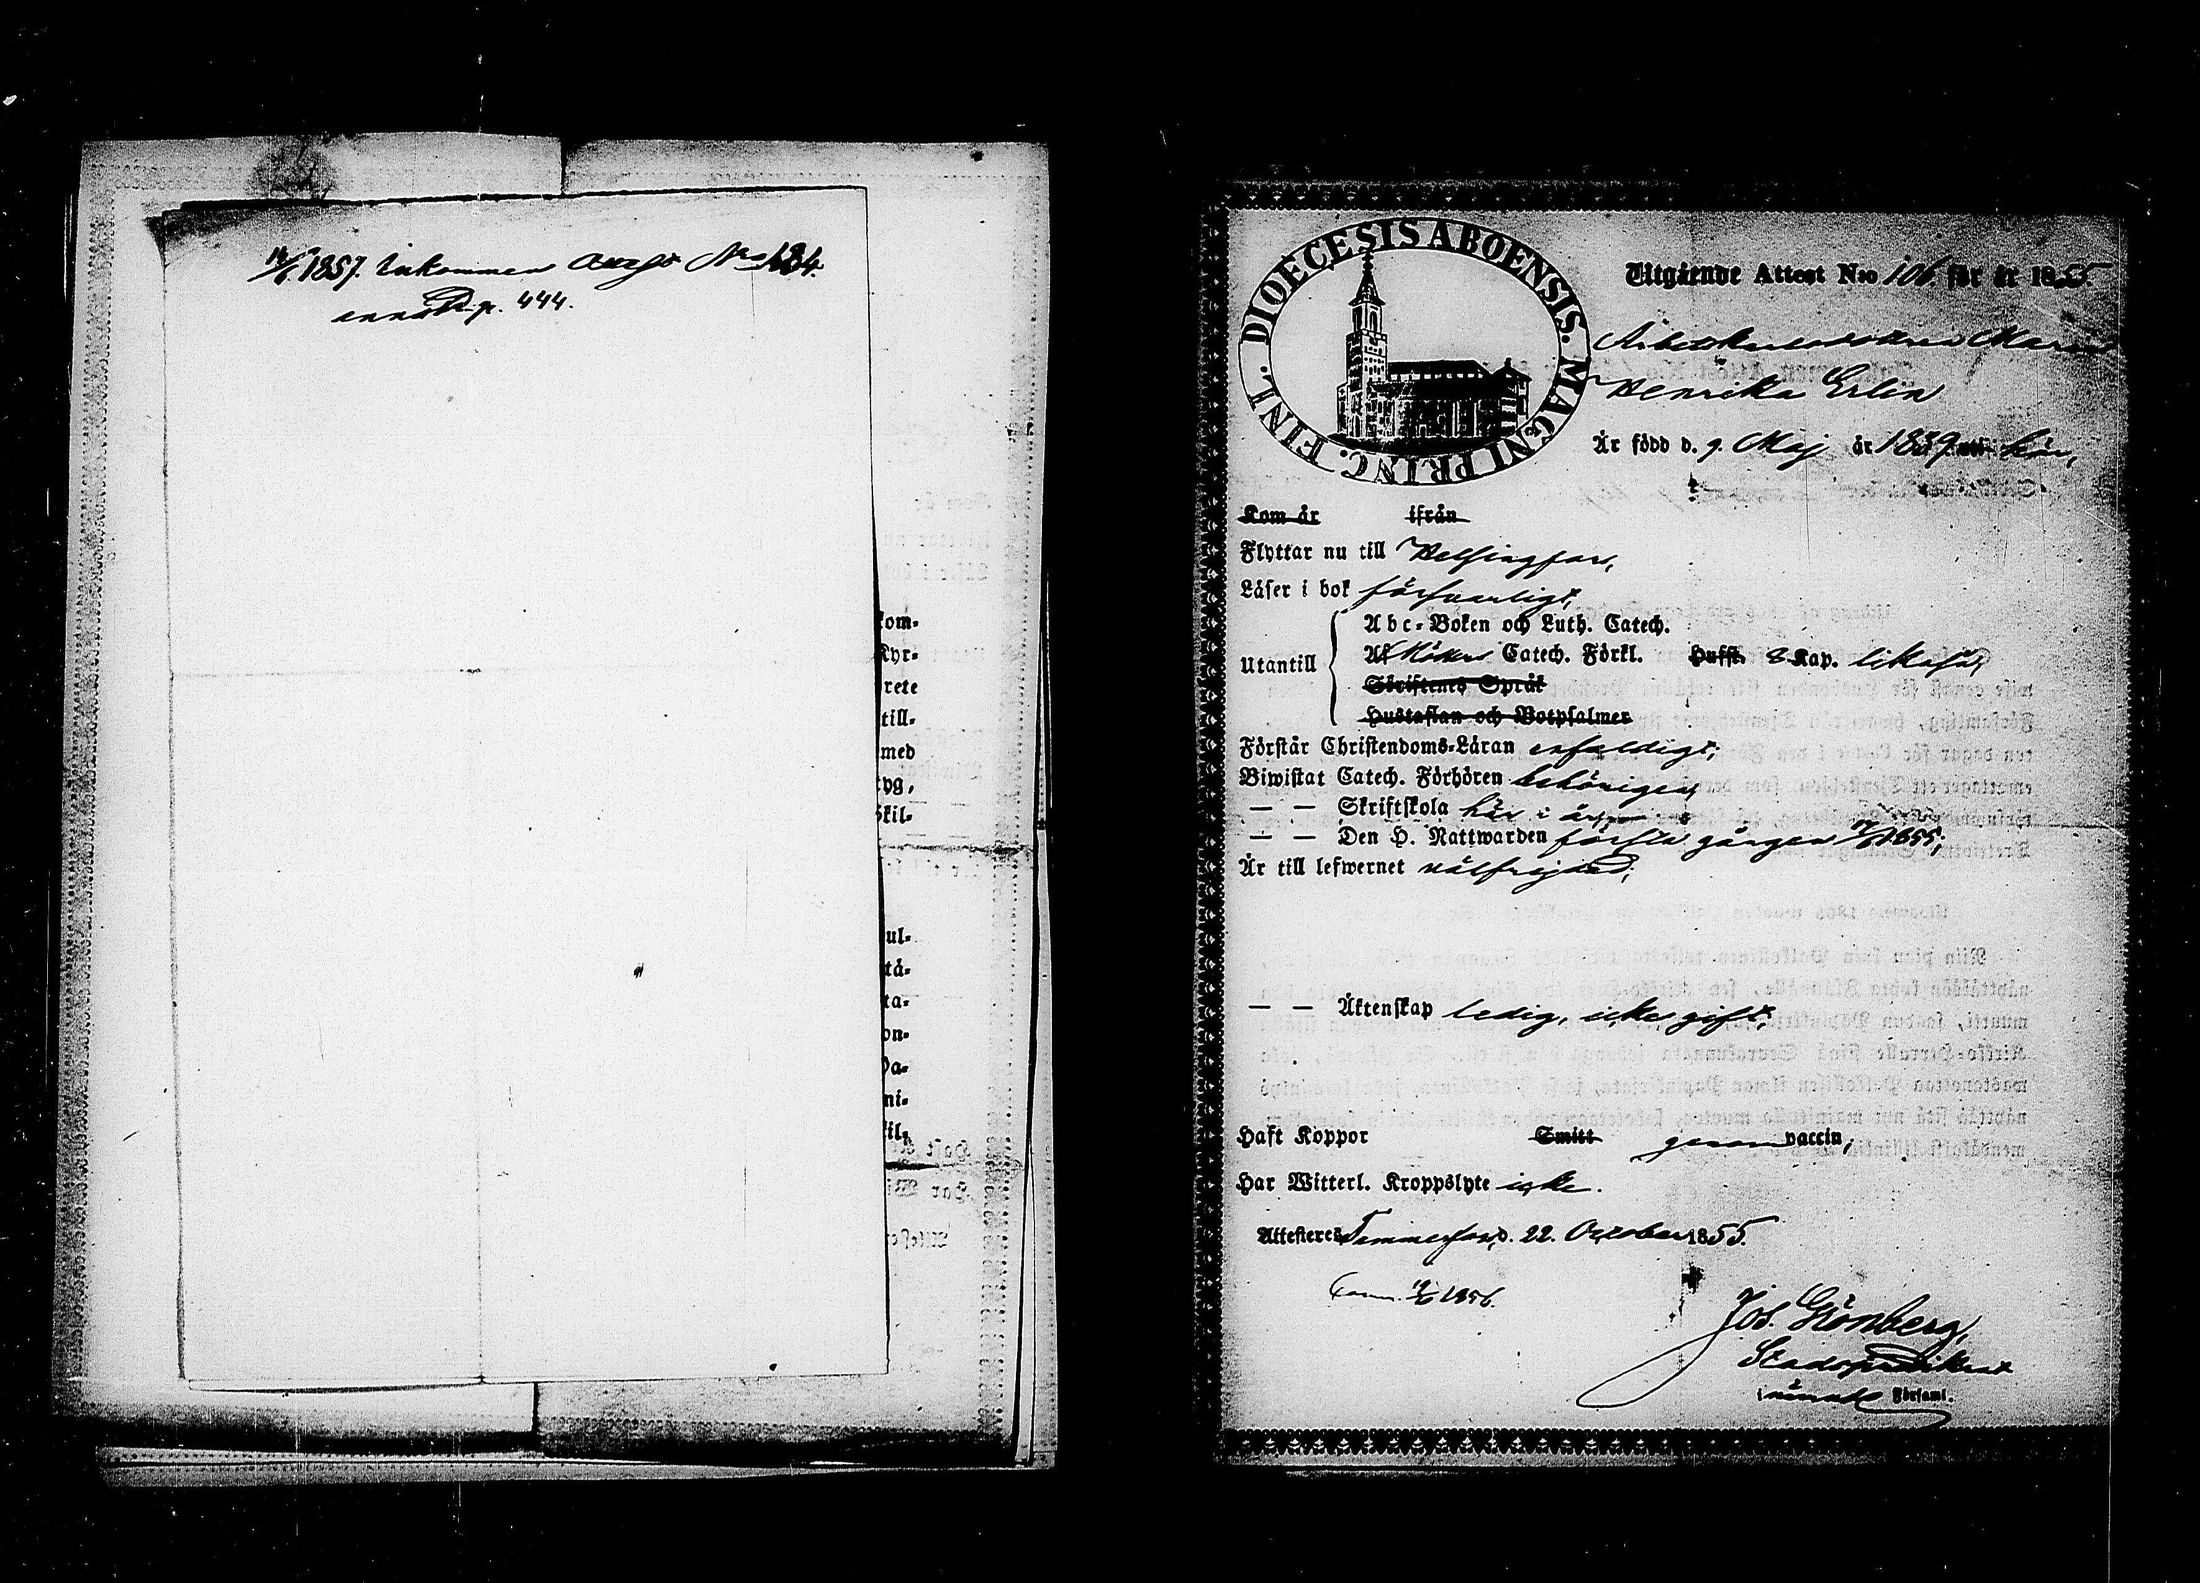 1857. Inkommen attest No 134.
annot. p. 444.
kom-
Kyr-
rete
till-
med
tyg,
skil-
ul-
tå-
ta-
on-
Da-
ni-
kil-
DIOECESIS ABOENSIS. MAGNI PRINC. FINL.
Utgående Attest N:o 106. för år 1855.
Arbetskarlsdottren Maria
Henrika Erlin
Är född d. 9. Maj år 1839 här,
Kom år ifrån
Flyttar nu till Helsingfors,
Läser i bok försvarligt,
Utantill
Abc-Boken och Luth. Catech.
Catech. Förkl. Hussk. 8 Kap. likaså,
Skriftenes Språk
Hustaflan och Botpsalmer
Förstår Christendoms-Läran enfaldigt;
Biwistat Catech. Förhören behörigen,
— — Skriftskola här i år,
— — Den H. Nattwarden första gången 1855;
Är till lefwernet välfrejdad;
— — Äktenskap ledig, icke gift;
Haft Koppor Smitt genom vaccin,
Har Witterl. Kroppslyte icke.
Attesteres Tammerfors, d. 22. October 1855.
1856.
Jos. Grönberg,
Stadspredikant
Församl.